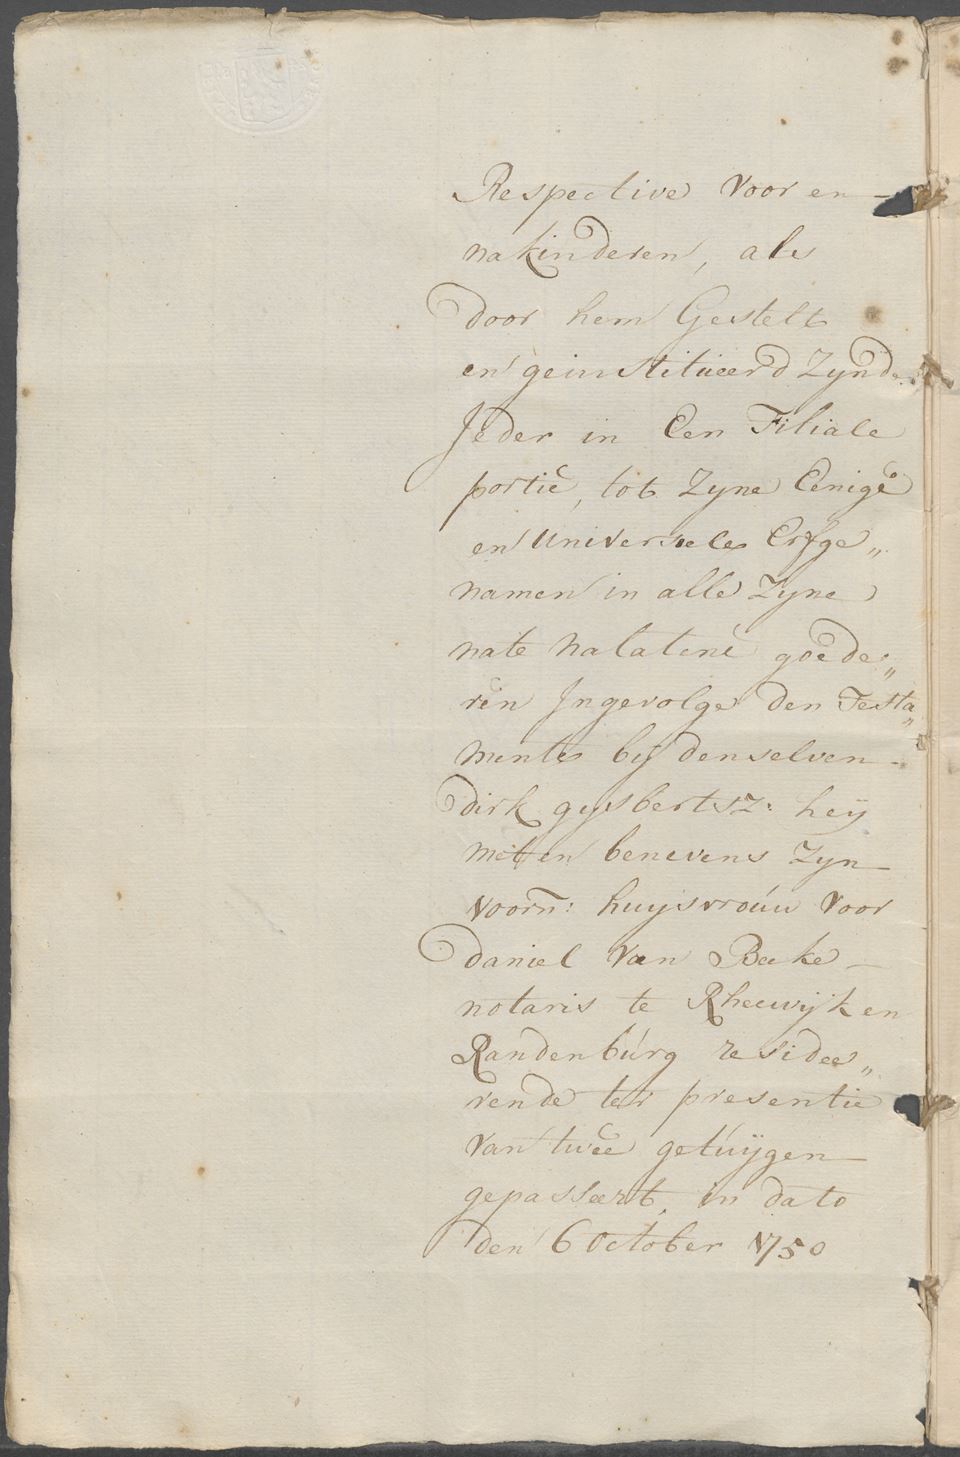 Respective Voor en
nakinderen, als
door hem Gestelt
en geinstitueerd Zynde
Jeder in Een Filiale
portie, tot Zyne Eenige
en Universeele Erfge„
namen in alle Zyne
nate nalatene goede„
ren Ingevolge den Testa„
mente bij denselven
dirk gysbertsz: heij
met en benevens Zyn
voorn: huysvrouw voor
daniel Van Beeke
notaris te Rheewijk en
Randenburg residee„
rende ter presentie
Van twee getuijgen
gepasseert, in dato
den 6 October 1750